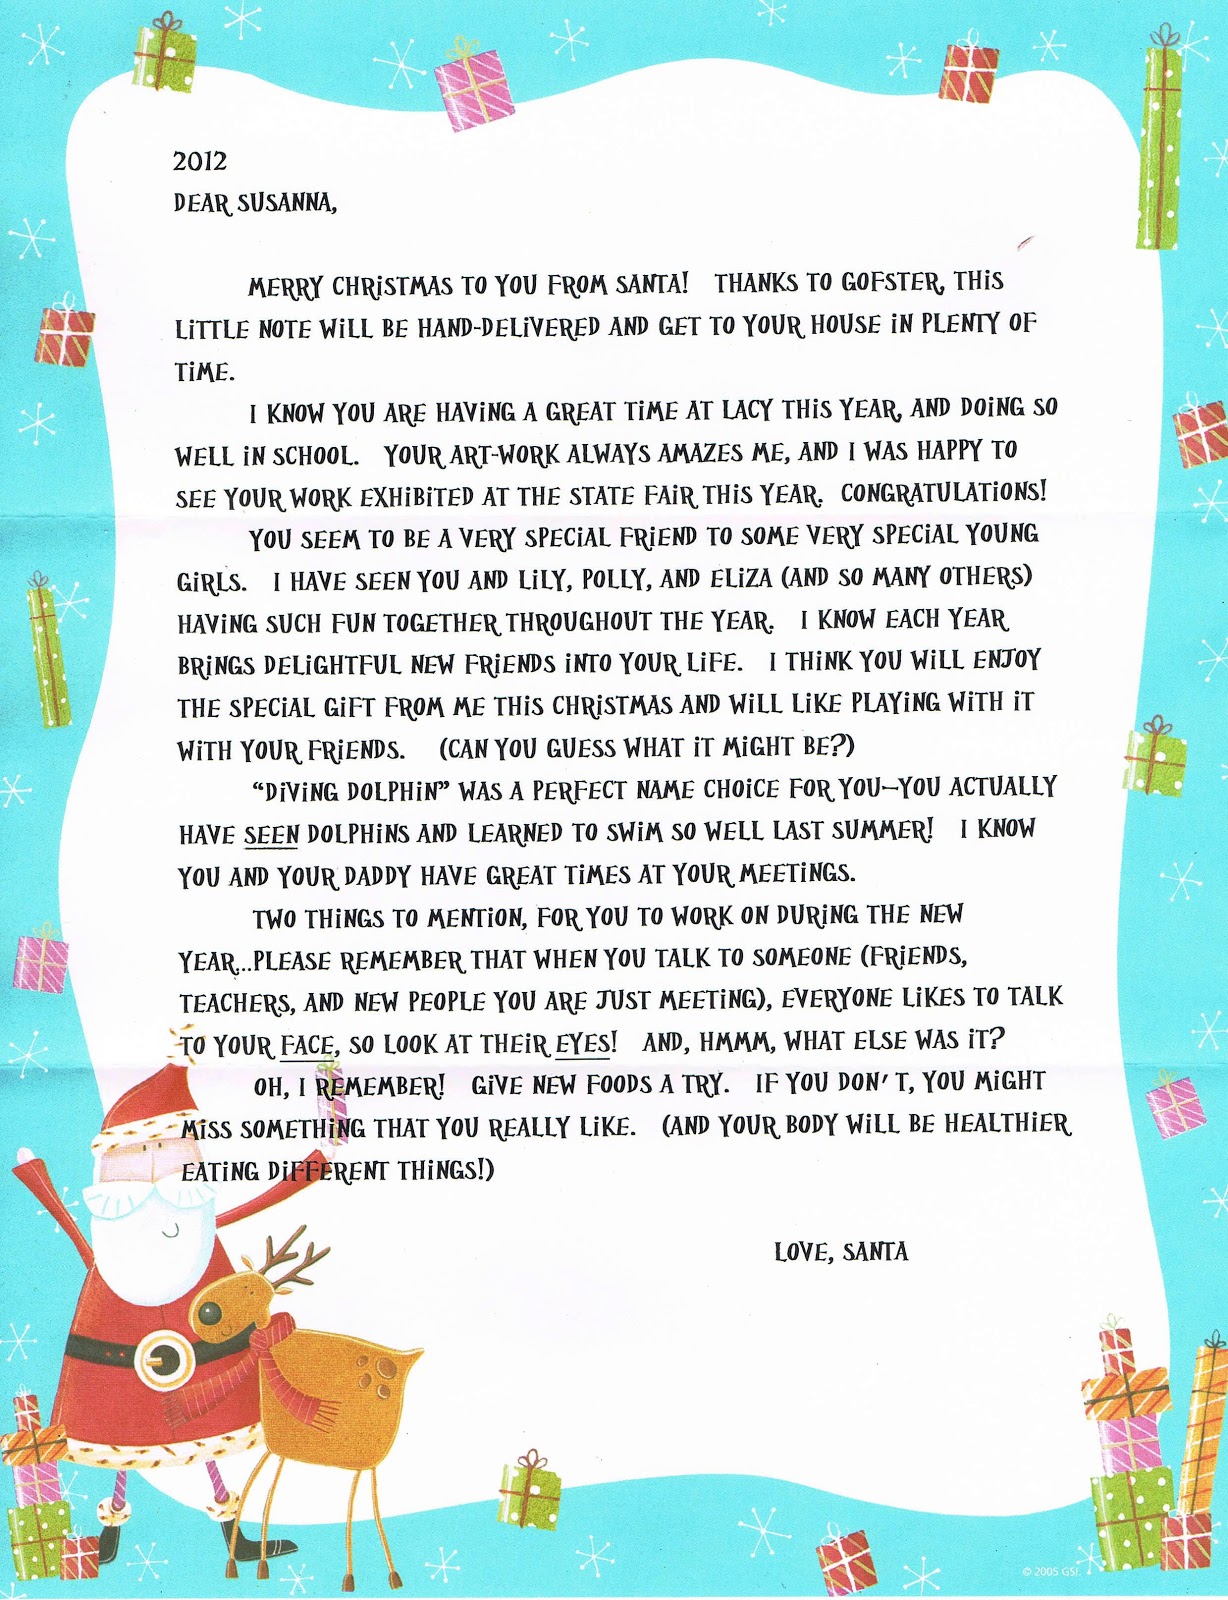 2012
DEAR SUSANNA,
MERRY CHRISTMAS TO YOU FROM SANTA! THANKS TO GOFSTER, THIS
LITTLE NOTE WILL BE HAND-DELIVERED AND GET TO YOUR HOUSE IN PLENTY OF
TIME.
I KNOW YOU ARE HAVING A GREAT TIME AT LACY THIS YEAR, AND DOING SO
WELL IN SCHOOL. YOUR ART-WORK ALWAYS AMAZES ME, AND I WAS HAPPY TO
SEE YOUR WORK EXHIBITED AT THE STATE FAIR THIS YEAR. CONGRATULATIONS!
YOU SEEM TO BE A VERY SPECIAL FRIEND TO SOME VERY SPECIAL YOUNG
GIRLS. I HAVE SEEN YOU AND LILY, POLLY, AND ELIZA (AND SO MANY OTHERS)
HAVING SUCH FUN TOGETHER THROUGHOUT THE YEAR. I KNOW EACH YEAR
BRINGS DELIGHTFUL NEW FRIENDS INTO YOUR LIFE. I THINK YOU WILL ENJOY
THE SPECIAL GIFT FROM ME THIS CHRISTMAS AND WILL LIKE PLAYING WITH IT
WITH YOUR FRIENDS. (CAN YOU GUESS WHAT IT MIGHT BE?)
“DIVING DOLPHIN” WAS A PERFECT NAME CHOICE FOR YOU—YOU ACTUALLY
HAVE SEEN DOLPHINS AND LEARNED TO SWIM SO WELL LAST SUMMER! I KNOW
YOU AND YOUR DADDY HAVE GREAT TIMES AT YOUR MEETINGS.
TWO THINGS TO MENTION, FOR YOU TO WORK ON DURING THE NEW
YEAR...PLEASE REMEMBER THAT WHEN YOU TALK TO SOMEONE (FRIENDS,
TEACHERS, AND NEW PEOPLE YOU ARE JUST MEETING), EVERYONE LIKES TO TALK
TO YOUR FACE, SO LOOK AT THEIR EYES! AND, HMMM, WHAT ELSE WAS IT?
OH, I REMEMBER! GIVE NEW FOODS A TRY. IF YOU DON'T, YOU MIGHT
MISS SOMETHING THAT YOU REALLY LIKE. (AND YOUR BODY WILL BE HEALTHIER
EATING DIFFERENT THINGS!)
LOVE, SANTA
© 2005 GSI.